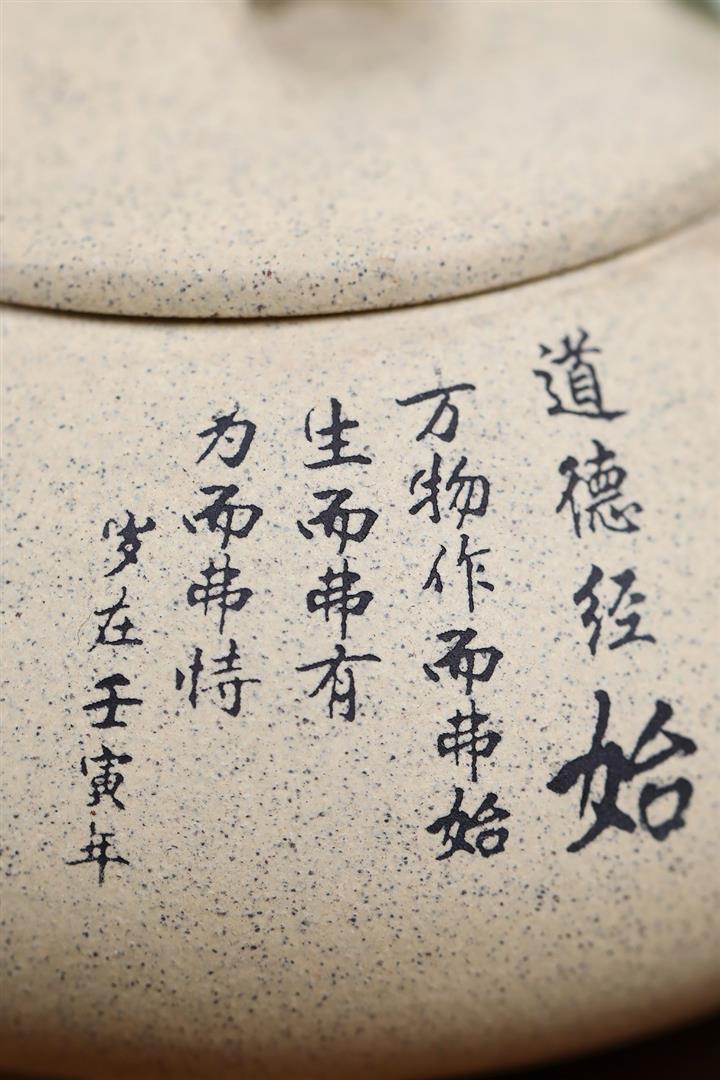 道德经始
万物作而弗始
生而弗有
为而弗恃
岁在壬寅年